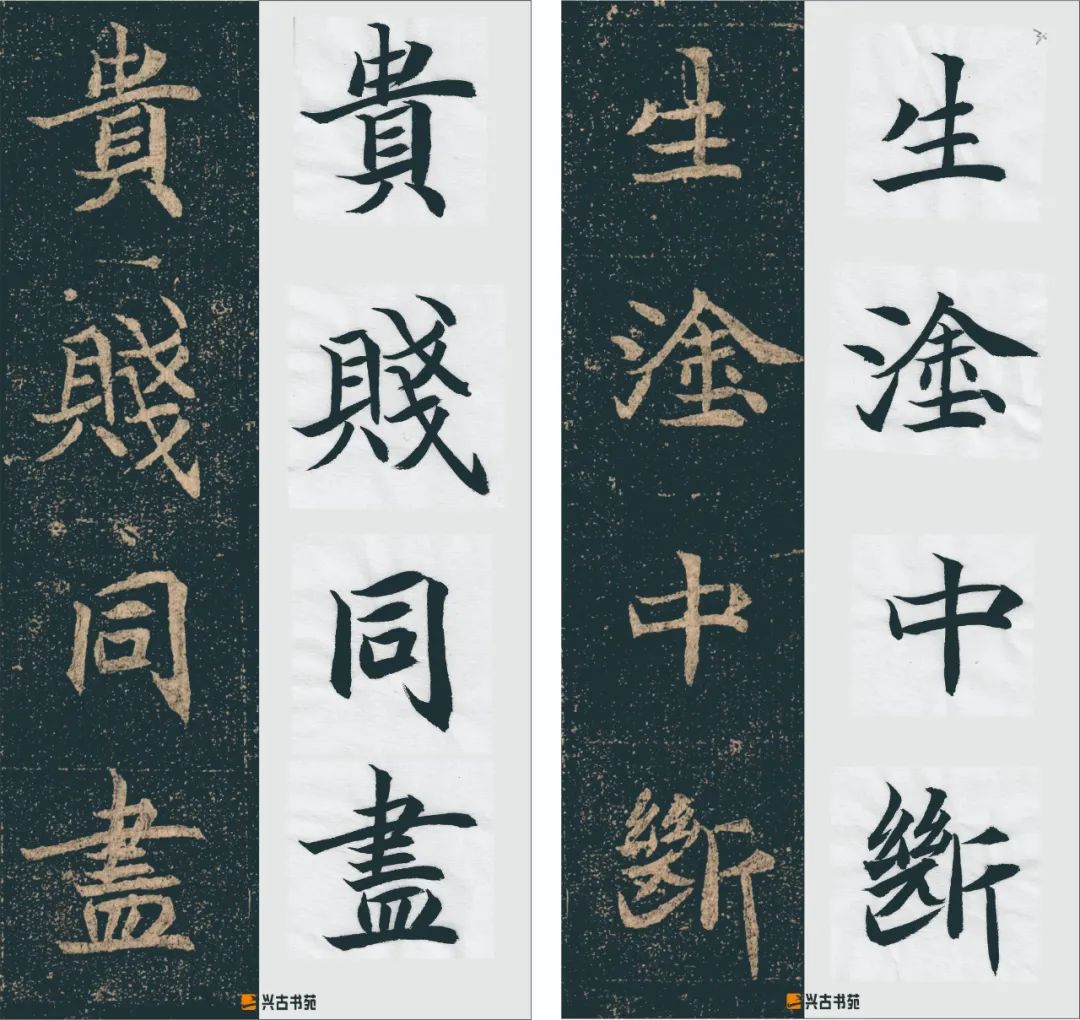 貴賤同盡
貴賤同盡
兴古书苑
生塗中斷
生塗中斷
兴古书苑